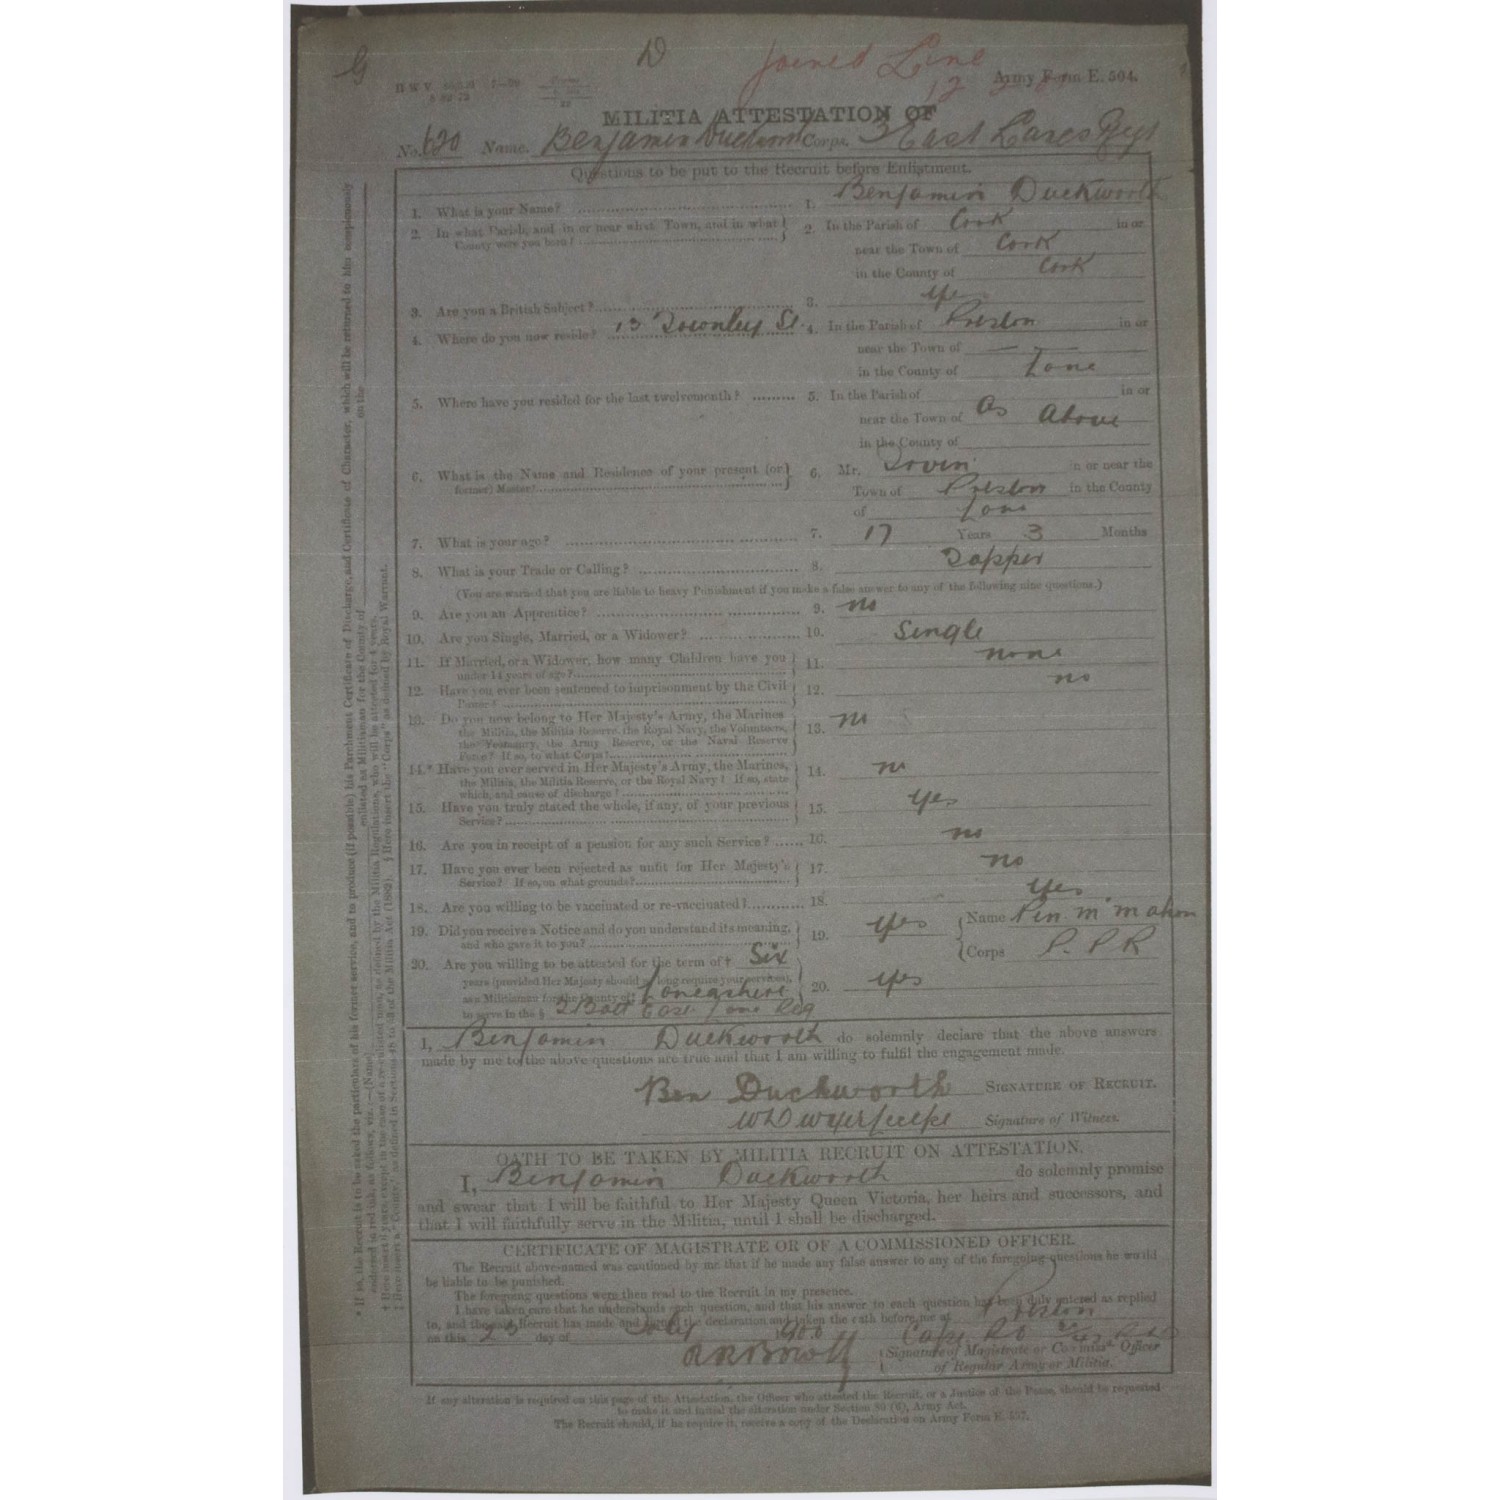 D
Joined Line
Army Form E. 504.
MILITIA ATTESTATION OF
No. 620 Name. Benjamin Duckworth Corps. 3 East Lancs Regt
Questions to be put to the Recruit before Enlistment.
1. What is your Name? 1. Benjamin Duckworth
2. In what Parish, and in or near what Town, and in what County were you born? 2. In the Parish of Cork in or
near the Town of Cork
in the County of Cork
3. Are you a British Subject? 3. Yes
4. Where do you now reside? 13 Townley St. 4. In the Parish of Preston in or
near the Town of —
in the County of Lanc
5. Where have you resided for the last twelvemonth? 5. In the Parish of in or
near the Town of As Above
in the County of
6. What is the Name and Residence of your present (or former) Master? 6. Mr. in or near the
Town of Preston in the County
of Lanc
7. What is your age? 7. 17 Years 3 Months
8. What is your Trade or Calling? 8.
(You are warned that you are liable to heavy Punishment if you make a false answer to any of the following nine questions.)
9. Are you an Apprentice? 9. no
10. Are you Single, Married, or a Widower? 10. Single
11. If Married, or a Widower, how many Children have you under 14 years of age? 11. none
12. Have you ever been sentenced to imprisonment by the Civil Power? 12. no
13. Do you now belong to Her Majesty's Army, the Marines,
the Militia, the Militia Reserve, the Royal Navy, the Volunteers,
the Yeomanry, the Army Reserve, or the Naval Reserve
Force? If so, to what Corps? 13. no
14.* Have you ever served in Her Majesty's Army, the Marines,
the Militia, the Militia Reserve, or the Royal Navy? If so, state
which, and cause of discharge? 14. no
15. Have you truly stated the whole, if any, of your previous Service? 15. Yes
16. Are you in receipt of a pension for any such Service? 16. no
17. Have you ever been rejected as unfit for Her Majesty's Service? If so, on what grounds? 17. no
18. Are you willing to be vaccinated or re-vaccinated? 18. Yes
19. Did you receive a Notice and do you understand its meaning, and who gave it to you? 19. Yes Name Pen. McMahon
Corps P. P. R
20. Are you willing to be attested for the term of † Six
years (provided Her Majesty should so long require your services),
as a Militiaman for the County of ‡ Lancashire 20. Yes
to serve in the § Batt East Lanc Reg
I, Benjamin Duckworth do solemnly declare that the above answers
made by me to the above questions are true and that I am willing to fulfil the engagement made.
Ben Duckworth SIGNATURE OF RECRUIT.
Signature of Witness.
OATH TO BE TAKEN BY MILITIA RECRUIT ON ATTESTATION.
I, Benjamin Duckworth do solemnly promise
and swear that I will be faithful to Her Majesty Queen Victoria, her heirs and successors, and
that I will faithfully serve in the Militia, until I shall be discharged.
CERTIFICATE OF MAGISTRATE OR OF A COMMISSIONED OFFICER.
The Recruit above-named was cautioned by me that if he made any false answer to any of the foregoing questions he would
be liable to be punished.
The foregoing questions were then read to the Recruit in my presence.
I have taken care that he understands each question, and that his answer to each question has been duly entered as replied
to, and the said Recruit has made and signed the declaration and taken the oath before me at Preston
on this 23 day of July 1900
Signature of Magistrate or Commissd Officer
of Regular Army or Militia.
If any alteration is required on this page of the Attestation, the Officer who attested the Recruit, or a Justice of the Peace, should be requested
to make it and initial the alteration under Section 80 (6), Army Act.
The Recruit should, if he require it, receive a copy of the Declaration on Army Form E. 557.
* If so, the Recruit is to be asked the particulars of his former service, and to produce (if possible) his Parchment Certificate of Discharge, and Certificate of Character, which will be returned to him conspicuously
endorsed in red ink, as follows, viz.:—(Name) enlisted as Militiaman for the County of on the
† Here insert 6 years, except in the case of a re-enlisted man, as defined by the Militia Regulations, who will be attested for 4 years.
‡ Here insert a "County," as defined in Sections 48 to 53 of the Militia Act (1882). § Here insert the "Corps" as defined by Royal Warrant.